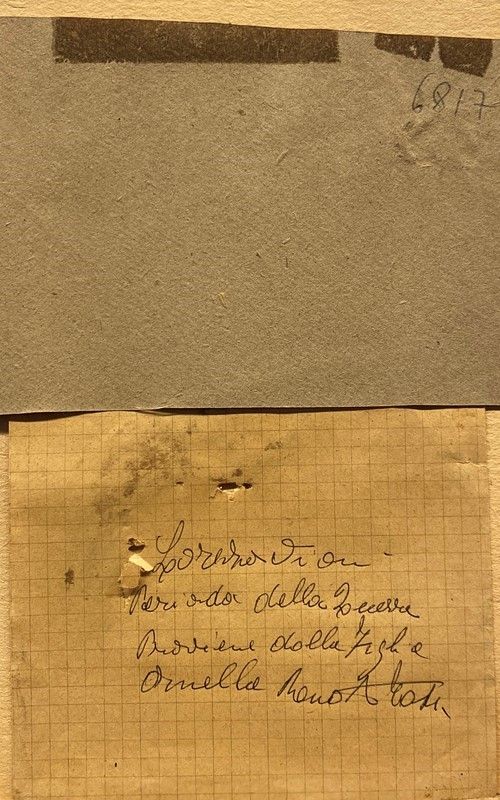 6817
Lorenzo Viani
Periodo della Guerra
Proviene dalla figlia
Ornella